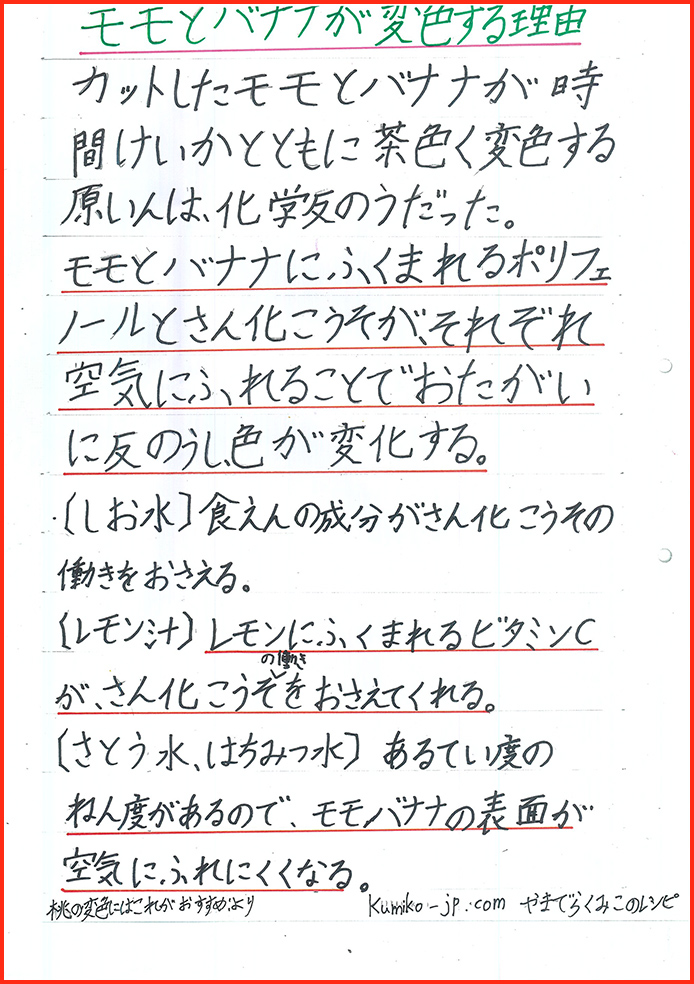 モモとバナナが変色する理由
カットしたモモとバナナが時
間けいかとともに茶色く変色する
原いんは、化学反のうだった。
モモとバナナにふくまれるポリフェ
ノールとさん化こうそが、それぞれ
空気にふれることでおたがい
に反のうし、色が変化する。
・〔しお水〕食えんの成分がさん化こうその
働きをおさえる。
〔レモン汁〕レモンにふくまれるビタミンC
の働き
が、さん化こうそをおさえてくれる。
〔さとう水、はちみつ水〕あるてい度の
ねん度があるので、モモ、バナナの表面が
空気にふれにくくなる。
桃の変色にはこれがおすすめより kumiko-jp.com やまでらくみこのレシピ